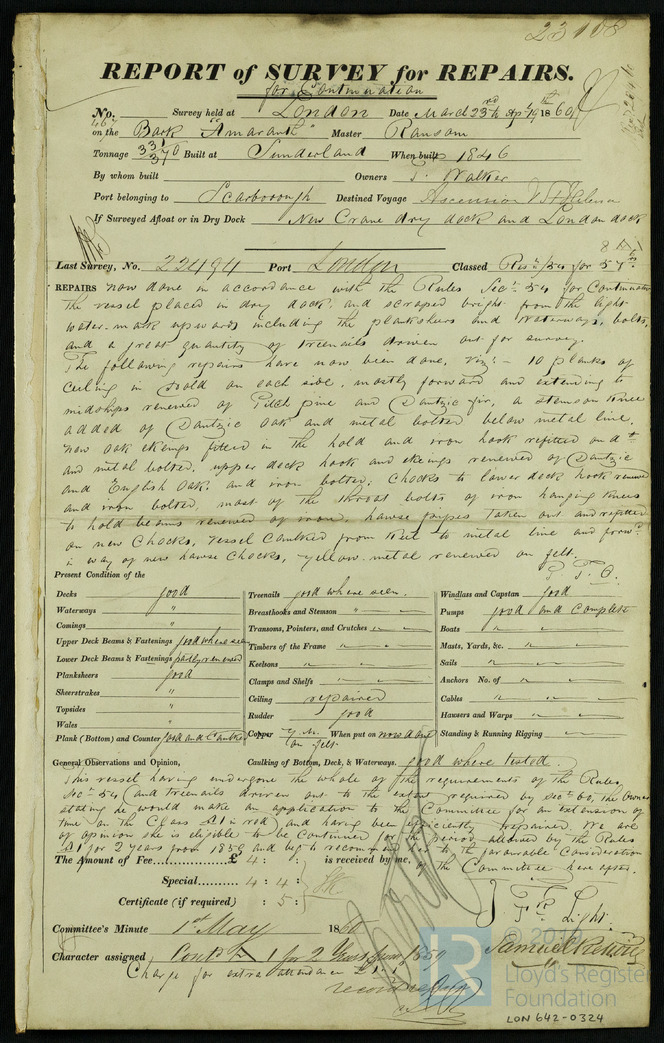 23108
REPORT of SURVEY for REPAIRS.
for Continuation
No. Survey held at London Date March 23rd to Apl 19th 1860
on the Bark "Amaranth" Master Ransom
Tonnage 331/370 Built at Sunderland When built 1846
By whom built Owners T. Walker
Port belonging to Scarborough Destined Voyage Ascension & St Helena
If Surveyed Afloat or in Dry Dock New Crane dry dock and London dock
Last Survey, No. 22494 Port London Classed
REPAIRS now done in accordance with the Rules Secn 54 for Continuation
the vessel placed in dry dock, and scraped bright from the light
water-mark upwards including the planksheers and waterways, bolts,
and a great quantity of treenails driven out for survey.
The following repairs have now been done, viz:- 10 planks of
ceiling in hold on each side, mostly forward and extending to
midships renewed of Pitch pine and Dantzic fir, a stemson knee
added of Dantzic oak and metal bolted below metal line,
new oak ekeings fitted in the hold and iron hook refitted on dto
and metal bolted, upper deck hook and ekeings renewed of Dantzic
and English oak, and iron bolted; chocks to lower deck hook renewed
and iron bolted, most of the throat bolts of iron hanging knees
to hold beams renewed of iron, hawse pipes taken out and refitted
on new chocks, vessel caulked from keel to metal line and forwd
in way of new hawse chocks, yellow-metal renewed on felt.
P.T.O.
Present Condition of the
Decks good
Waterways "
Comings "
Upper Deck Beams & Fastenings good where seen
Lower Deck Beams & Fastenings partly renewed
Planksheers good
Sheerstrakes "
Topsides "
Wales "
Plank (Bottom) and Counter good and Caulked
Treenails good where seen.
Breasthooks and Stemson " "
Transoms, Pointers, and Crutches " "
Timbers of the Frame " "
Keelsons " "
Clamps and Shelfs " "
Ceiling repaired
Rudder good
Copper Y.M. on felt. When put on now done
Windlass and Capstan good
Pumps good and Complete
Boats " "
Masts, Yards, &c. " "
Sails " "
Anchors No. of " "
Cables " "
Hawsers and Warps " "
Standing & Running Rigging " "
General Observations and Opinion, Caulking of Bottom, Deck, & Waterways. good where tested.
This vessel having undergone the whole of the requirements of the Rules,
Secn 54 (and treenails driven out to the extent required by Secn 60, the Owner
stating he would make an application to the Committee for an extension of
time on the Class A1 in red) and having been efficiently repaired. We are
of opinion she is eligible to be Continued for the period allowed by the Rules
A1 for 2 years from 1859 and beg to recommend her to the favourable Consideration
of the Committee here after.
The Amount of Fee £ 4 : : is received by me,
Special 4 : 4 :
Certificate (if required) : 5 :
Light
Committee's Minute 1st May 1860
Character assigned Contd A 1 for 2 Years from 1859
Charge for extra attendance £1.1
© 2019
Lloyd's Register
Foundation
LON 642-0324